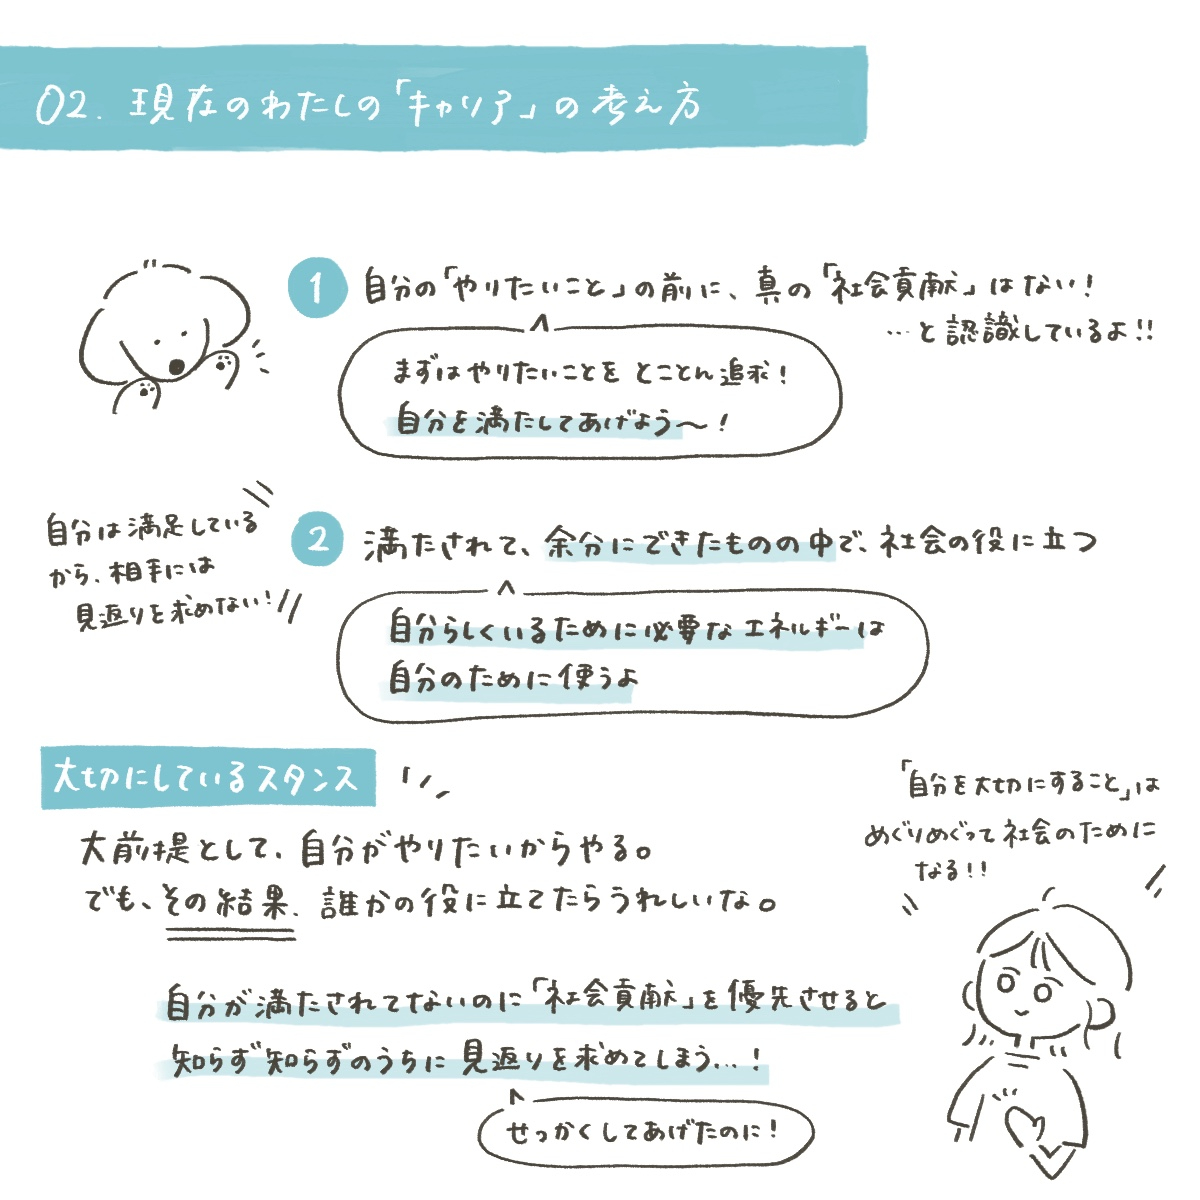 02. 現在のわたしの「キャリア」の考え方
1 自分の「やりたいこと」の前に、真の「社会貢献」はない!
…と認識しているよ!!
まずはやりたいことを とことん追求!
自分を満たしてあげよう〜!
自分は満足している
から、相手には
見返りを求めない!
2 満たされて、余分にできたものの中で、社会の役に立つ
自分らしくいるために必要なエネルギーは
自分のために使うよ
大切にしているスタンス
大前提として、自分がやりたいからやる。
でも、その結果、誰かの役に立てたらうれしいな。
「自分を大切にすること」は
めぐりめぐって社会のために
なる!!
自分が満たされてないのに「社会貢献」を優先させると
知らず知らずのうちに見返りを求めてしまう…!
せっかくしてあげたのに!